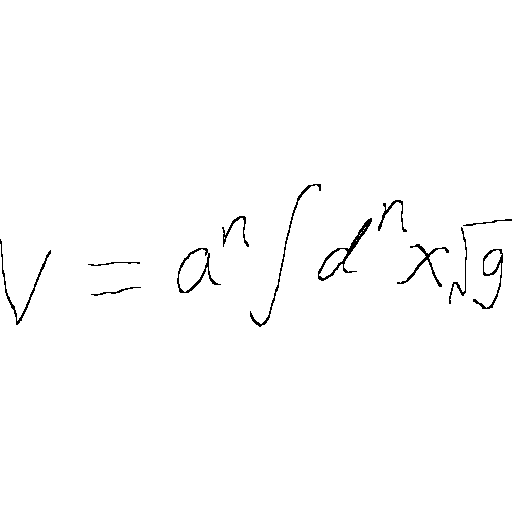 V = a^n ∫ d^n x √g